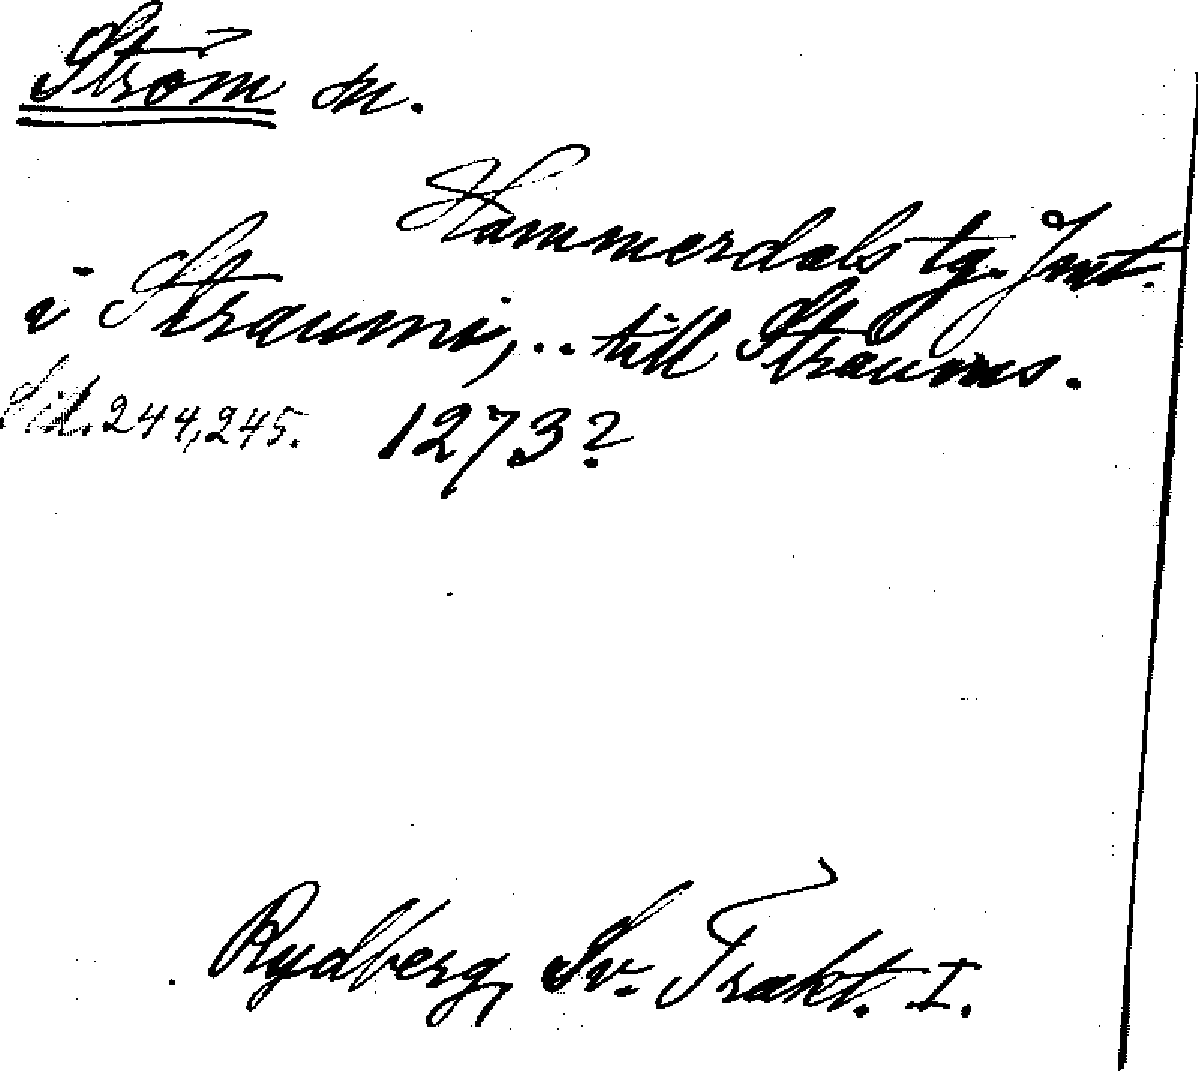 Ström sn.
Hammerdals tg. Jmt.
i Straumi,.. till Straums.
Sid. 244,245. 1273?
Rydberg, Sv. Trakt. I.